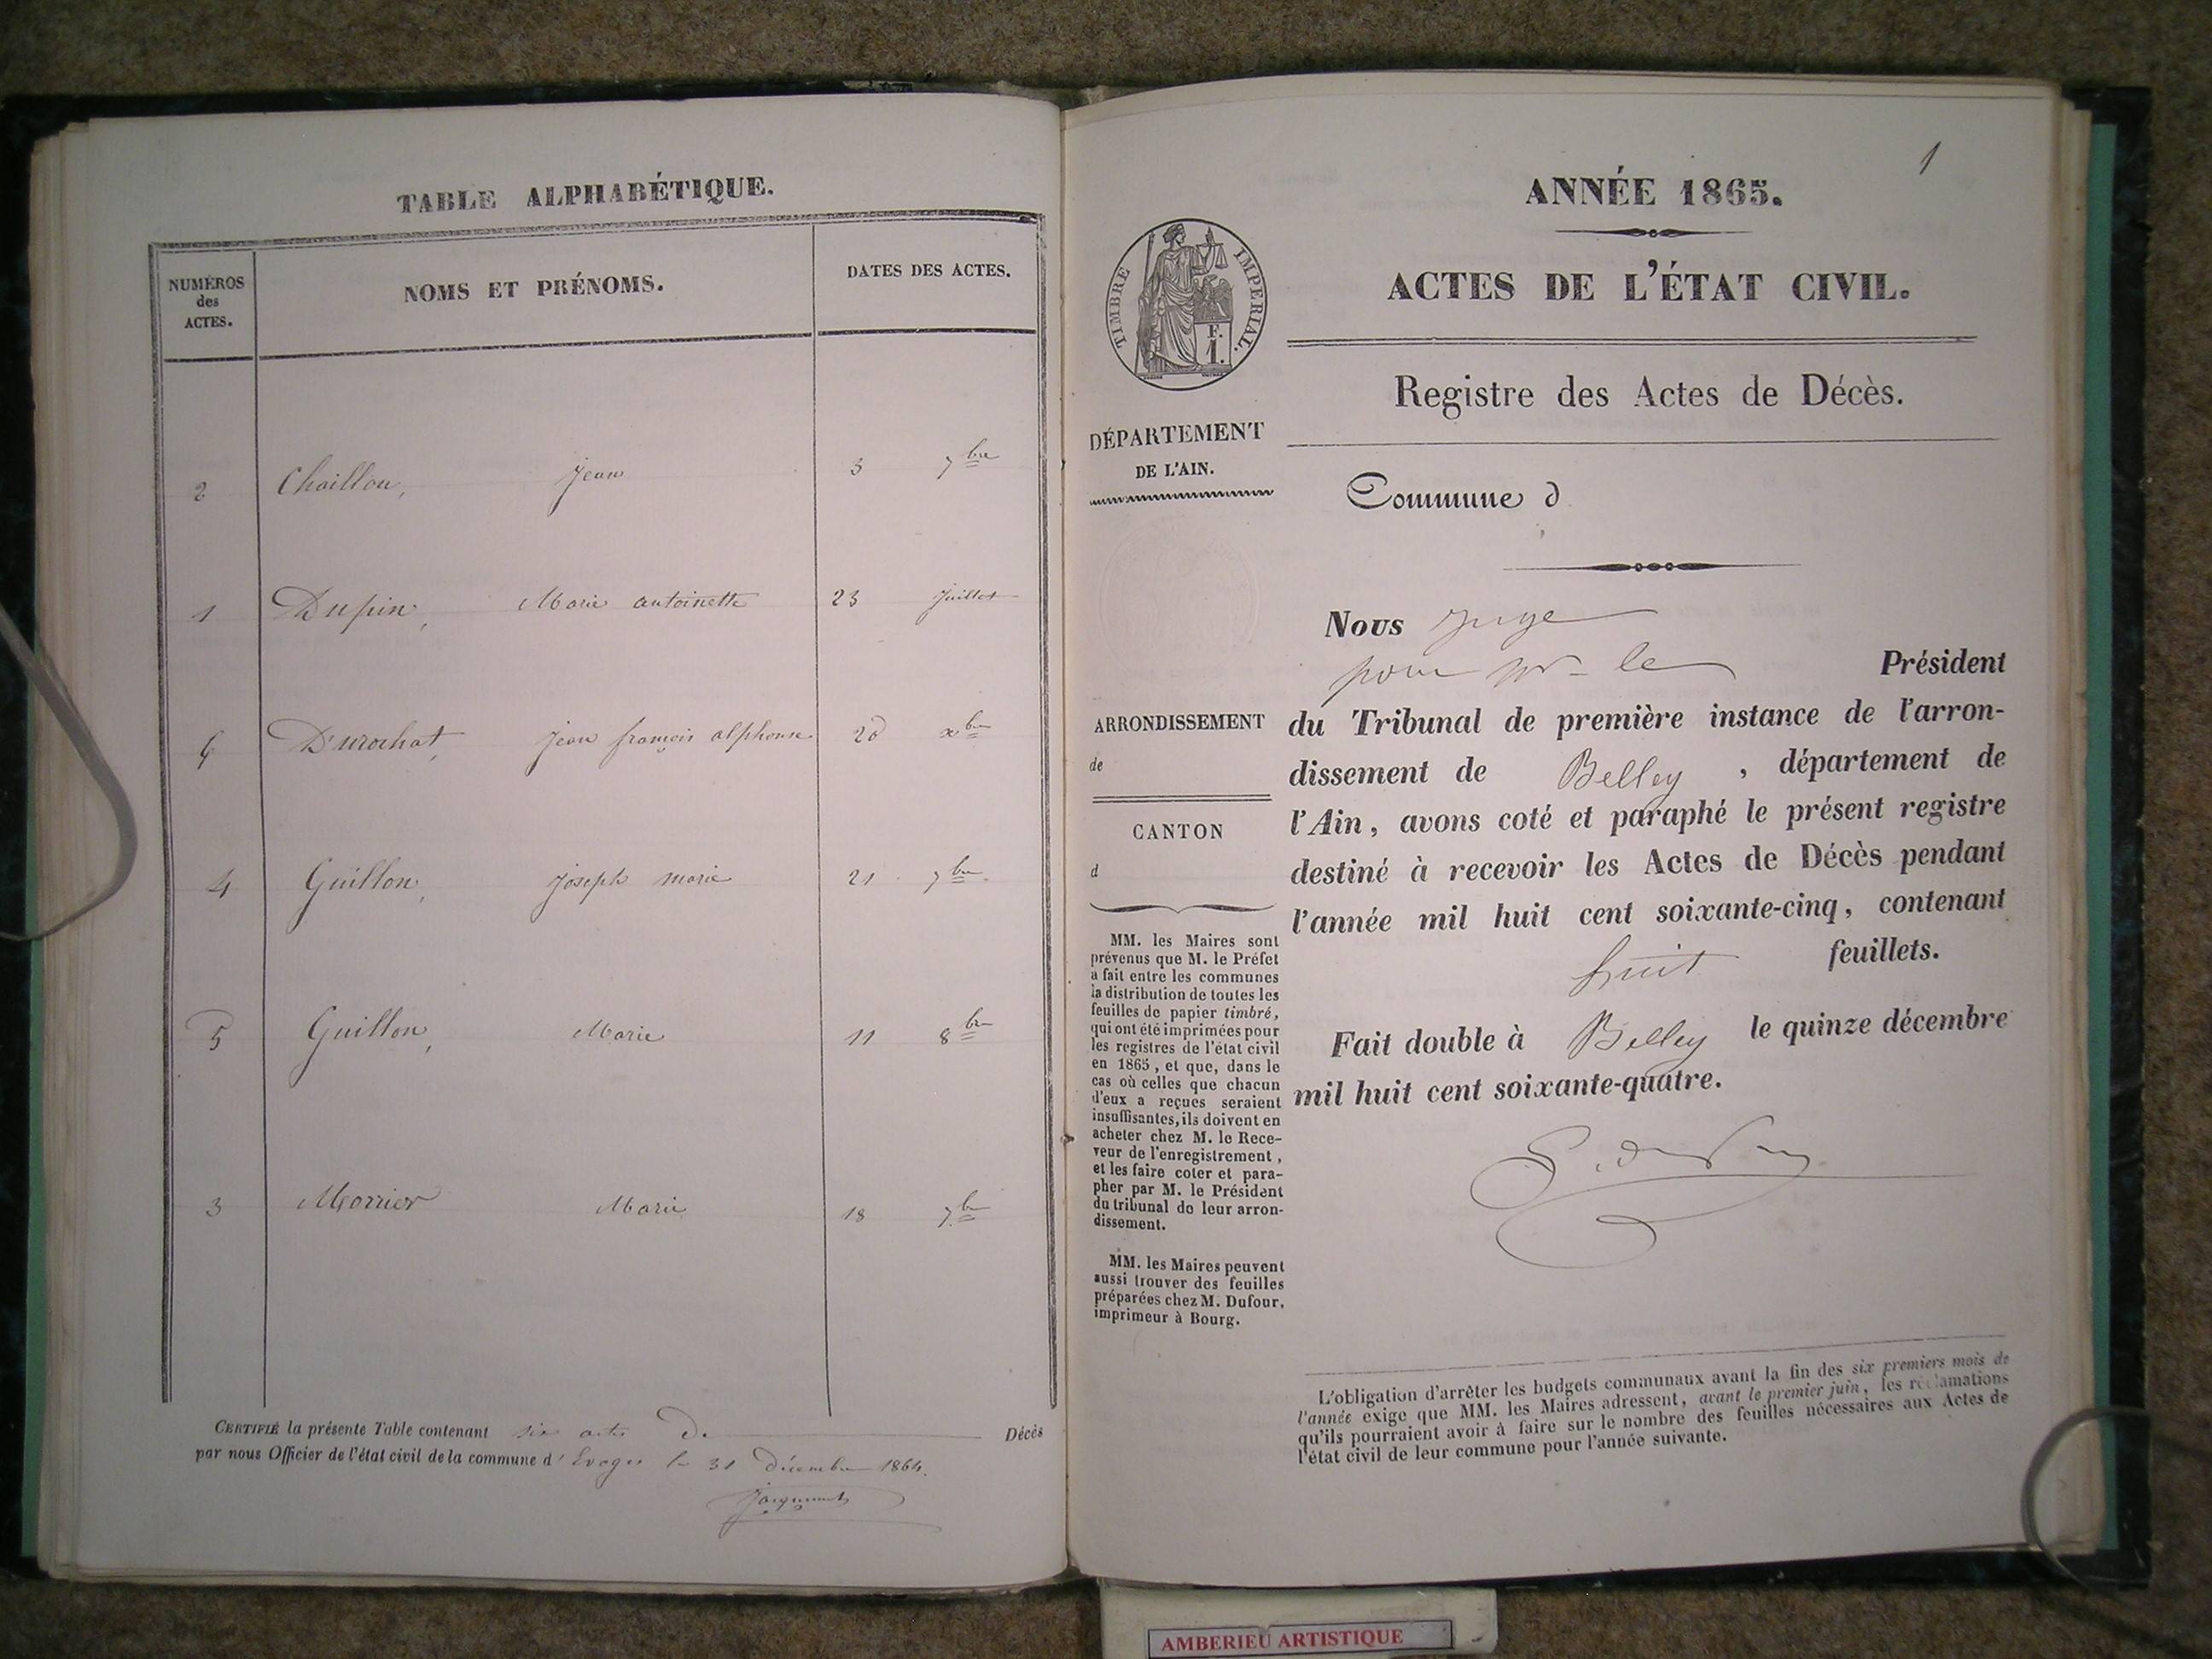 TABLE ALPHABÉTIQUE.
NUMÉROS des ACTES.
NOMS ET PRÉNOMS.
DATES DES ACTES.
2 Chaillou, Jean 3 7bre
1 Dupin, Marie antoinette 23 Juillet
6 Durochat, jean françois alphonse 20 xbre
4 Guillon, joseph marie 21 7bre
5 Guillon, Marie 11 8bre
3 Morrier Marie 18 7bre
CERTIFIÉ la présente Table contenant six actes De Décès
par nous Officier de l'état civil de la commune d' Evoges le 31 décembre 1864.
1
ANNÉE 1865.
ACTES DE L'ÉTAT CIVIL.
Registre des Actes de Décès.
TIMBRE IMPERIAL.
F.
1.
DÉPARTEMENT
DE L'AIN.
Commune d
Nous Juge
pour Mr le Président
du Tribunal de première instance de l'arron-
dissement de Belley, département de
l'Ain, avons coté et paraphé le présent registre
destiné à recevoir les Actes de Décès pendant
l'année mil huit cent soixante-cinq, contenant
huit feuillets.
Fait double à Belley le quinze décembre
mil huit cent soixante-quatre.
ARRONDISSEMENT
de
CANTON
d
MM. les Maires sont
prévenus que M. le Préfet
a fait entre les communes
la distribution de toutes les
feuilles de papier timbré,
qui ont été imprimées pour
les registres de l'état civil
en 1865, et que, dans le
cas où celles que chacun
d'eux a reçues seraient
insuffisantes, ils doivent en
acheter chez M. le Rece-
veur de l'enregistrement,
et les faire coter et para-
pher par M. le Président
du tribunal de leur arron-
dissement.
MM. les Maires peuvent
aussi trouver des feuilles
préparées chez M. Dufour,
imprimeur à Bourg.
L'obligation d'arrêter les budgets communaux avant la fin des six premiers mois de
l'année exige que MM. les Maires adressent, avant le premier juin, les réclamations
qu'ils pourraient avoir à faire sur le nombre des feuilles nécessaires aux Actes de
l'état civil de leur commune pour l'année suivante.
AMBERIEU ARTISTIQUE